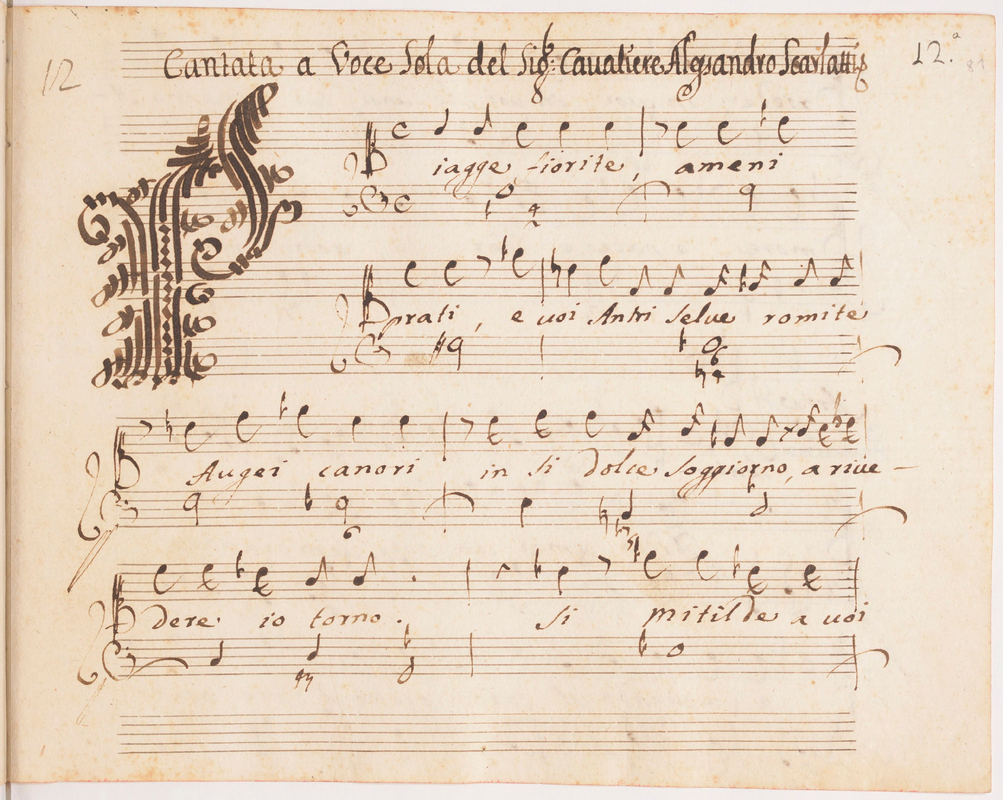 12 Cantata a Voce Sola del Sigr: Cavaliere Alessandro Scarlatti 12.a
Piagge fiorite, ameni
prati, e voi Antri Selve romite
Augei canori in si dolce Soggiorno, a rive-
dere io torno. Si Mitilde a voi